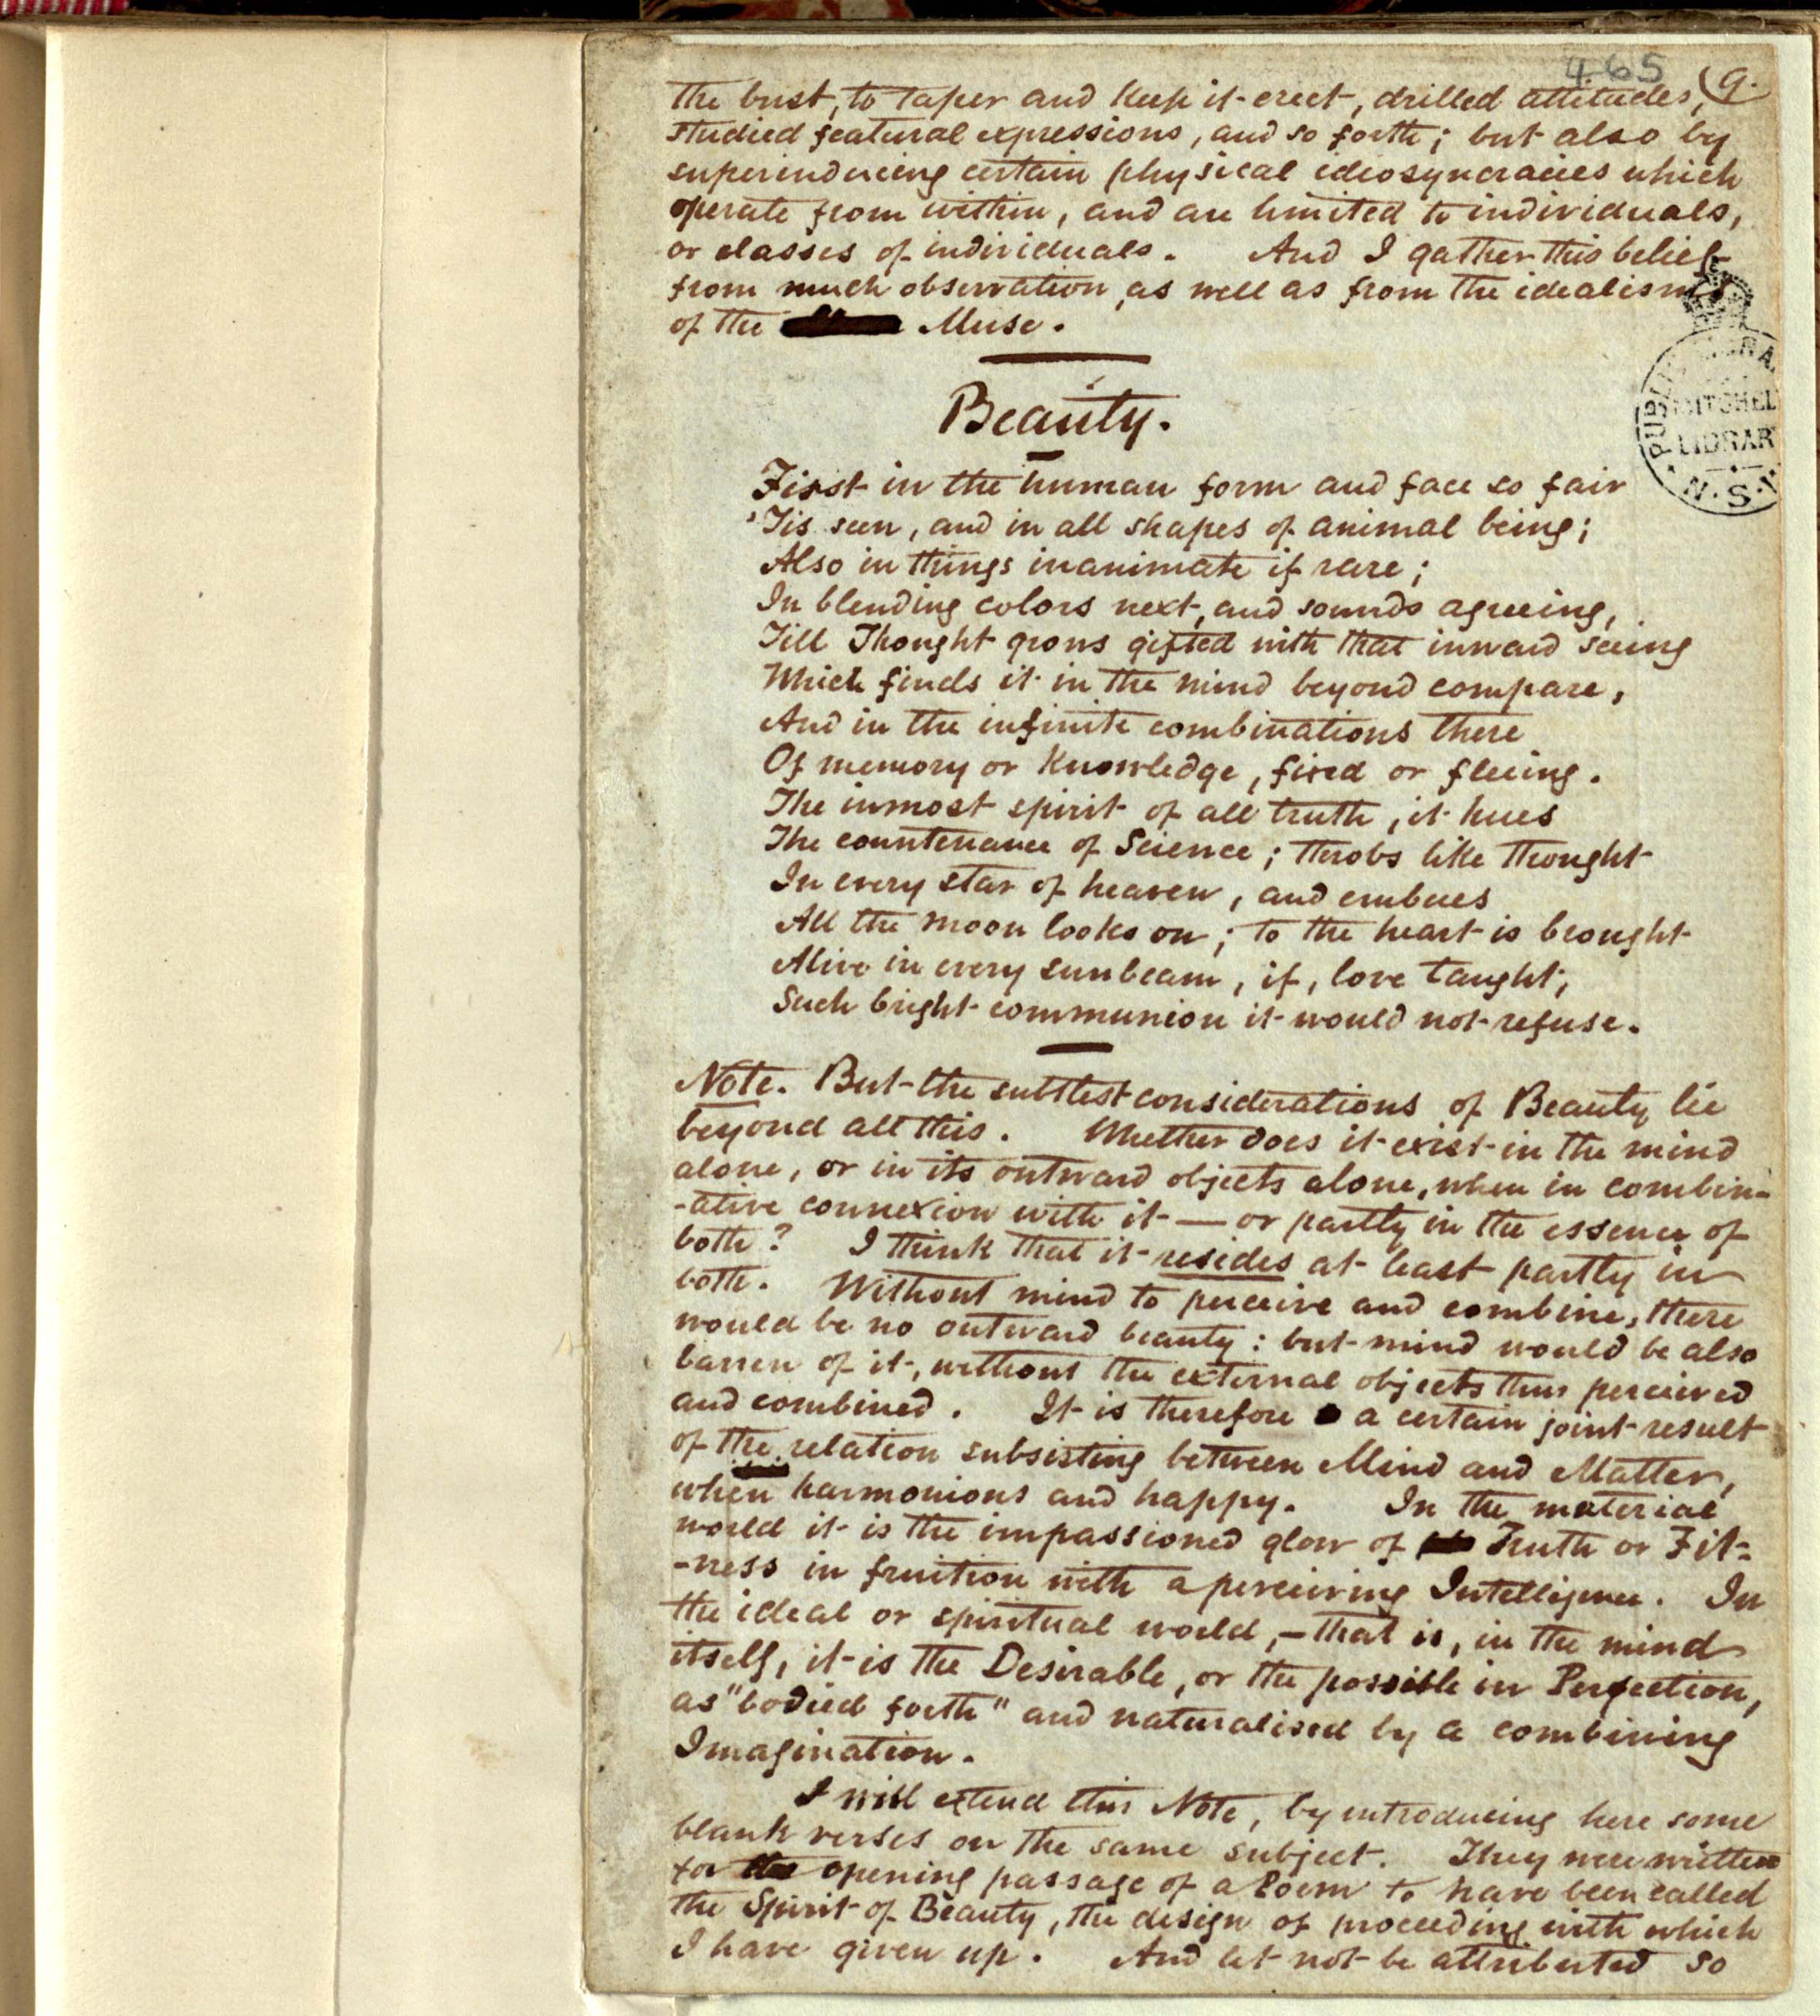 465
(9.
the bust, to taper and keep it erect, drilled attitudes,
studied featural expressions, and so forth; but also by
superinducing certain physical ideosyncracies which
operate from within, and are limited to individuals,
or classes of individuals. And I gather this belief
from much observation, as well as from the idealisms
of the Muse.
Beauty.
First in the human form and face so fair
'Tis seen, and in all shapes of animal being;
Also in things inanimate if rare;
In blending colors next, and sounds agreeing,
Till Thought grows gifted with that inward seeing
Which finds it in the mind beyond compare,
And in the infinite combinations there
Of memory or Knowledge, fixed or fleeing.
The inmost spirit of all truth, it hues
The countenance of Science; throbs like thought
In every star of heaven, and embues
All the moon looks on; to the heart is brought
Alive in every sunbeam, if, love taught,
Such bright communion it would not refuse.
PUBLIC
MITCHEL
LIBRAR
N.S.
Note. But the subtlest considerations of Beauty lie
beyond all this. Whether does it exist in the mind
alone, or in its outward objects alone, when in combin-
-ative connexion with it — or partly in the essence of
both? I think that it resides at least partly in
both. Without mind to perceive and combine, there
would be no outward beauty: but mind would be also
barren of it, without the external objects thus perceived
and combined. It is therefore a certain joint result
of the relation subsisting between Mind and Matter,
when harmonious and happy. In the material
world it is the impassioned glow of Truth or Fit-
-ness in fruition with a perceiving Intelligence. In
the ideal or spiritual world,—that is, in the mind
itself, it is the Desirable, or the possible in Perfection,
as "bodied forth" and naturalised by a combining
Imagination.
I will extend this Note, by introducing here some
blank verses on the same subject. They were written
for opening passage of a Poem to have been called
the Spirit of Beauty, the design of proceeding with which
I have given up. And let not be attributed so